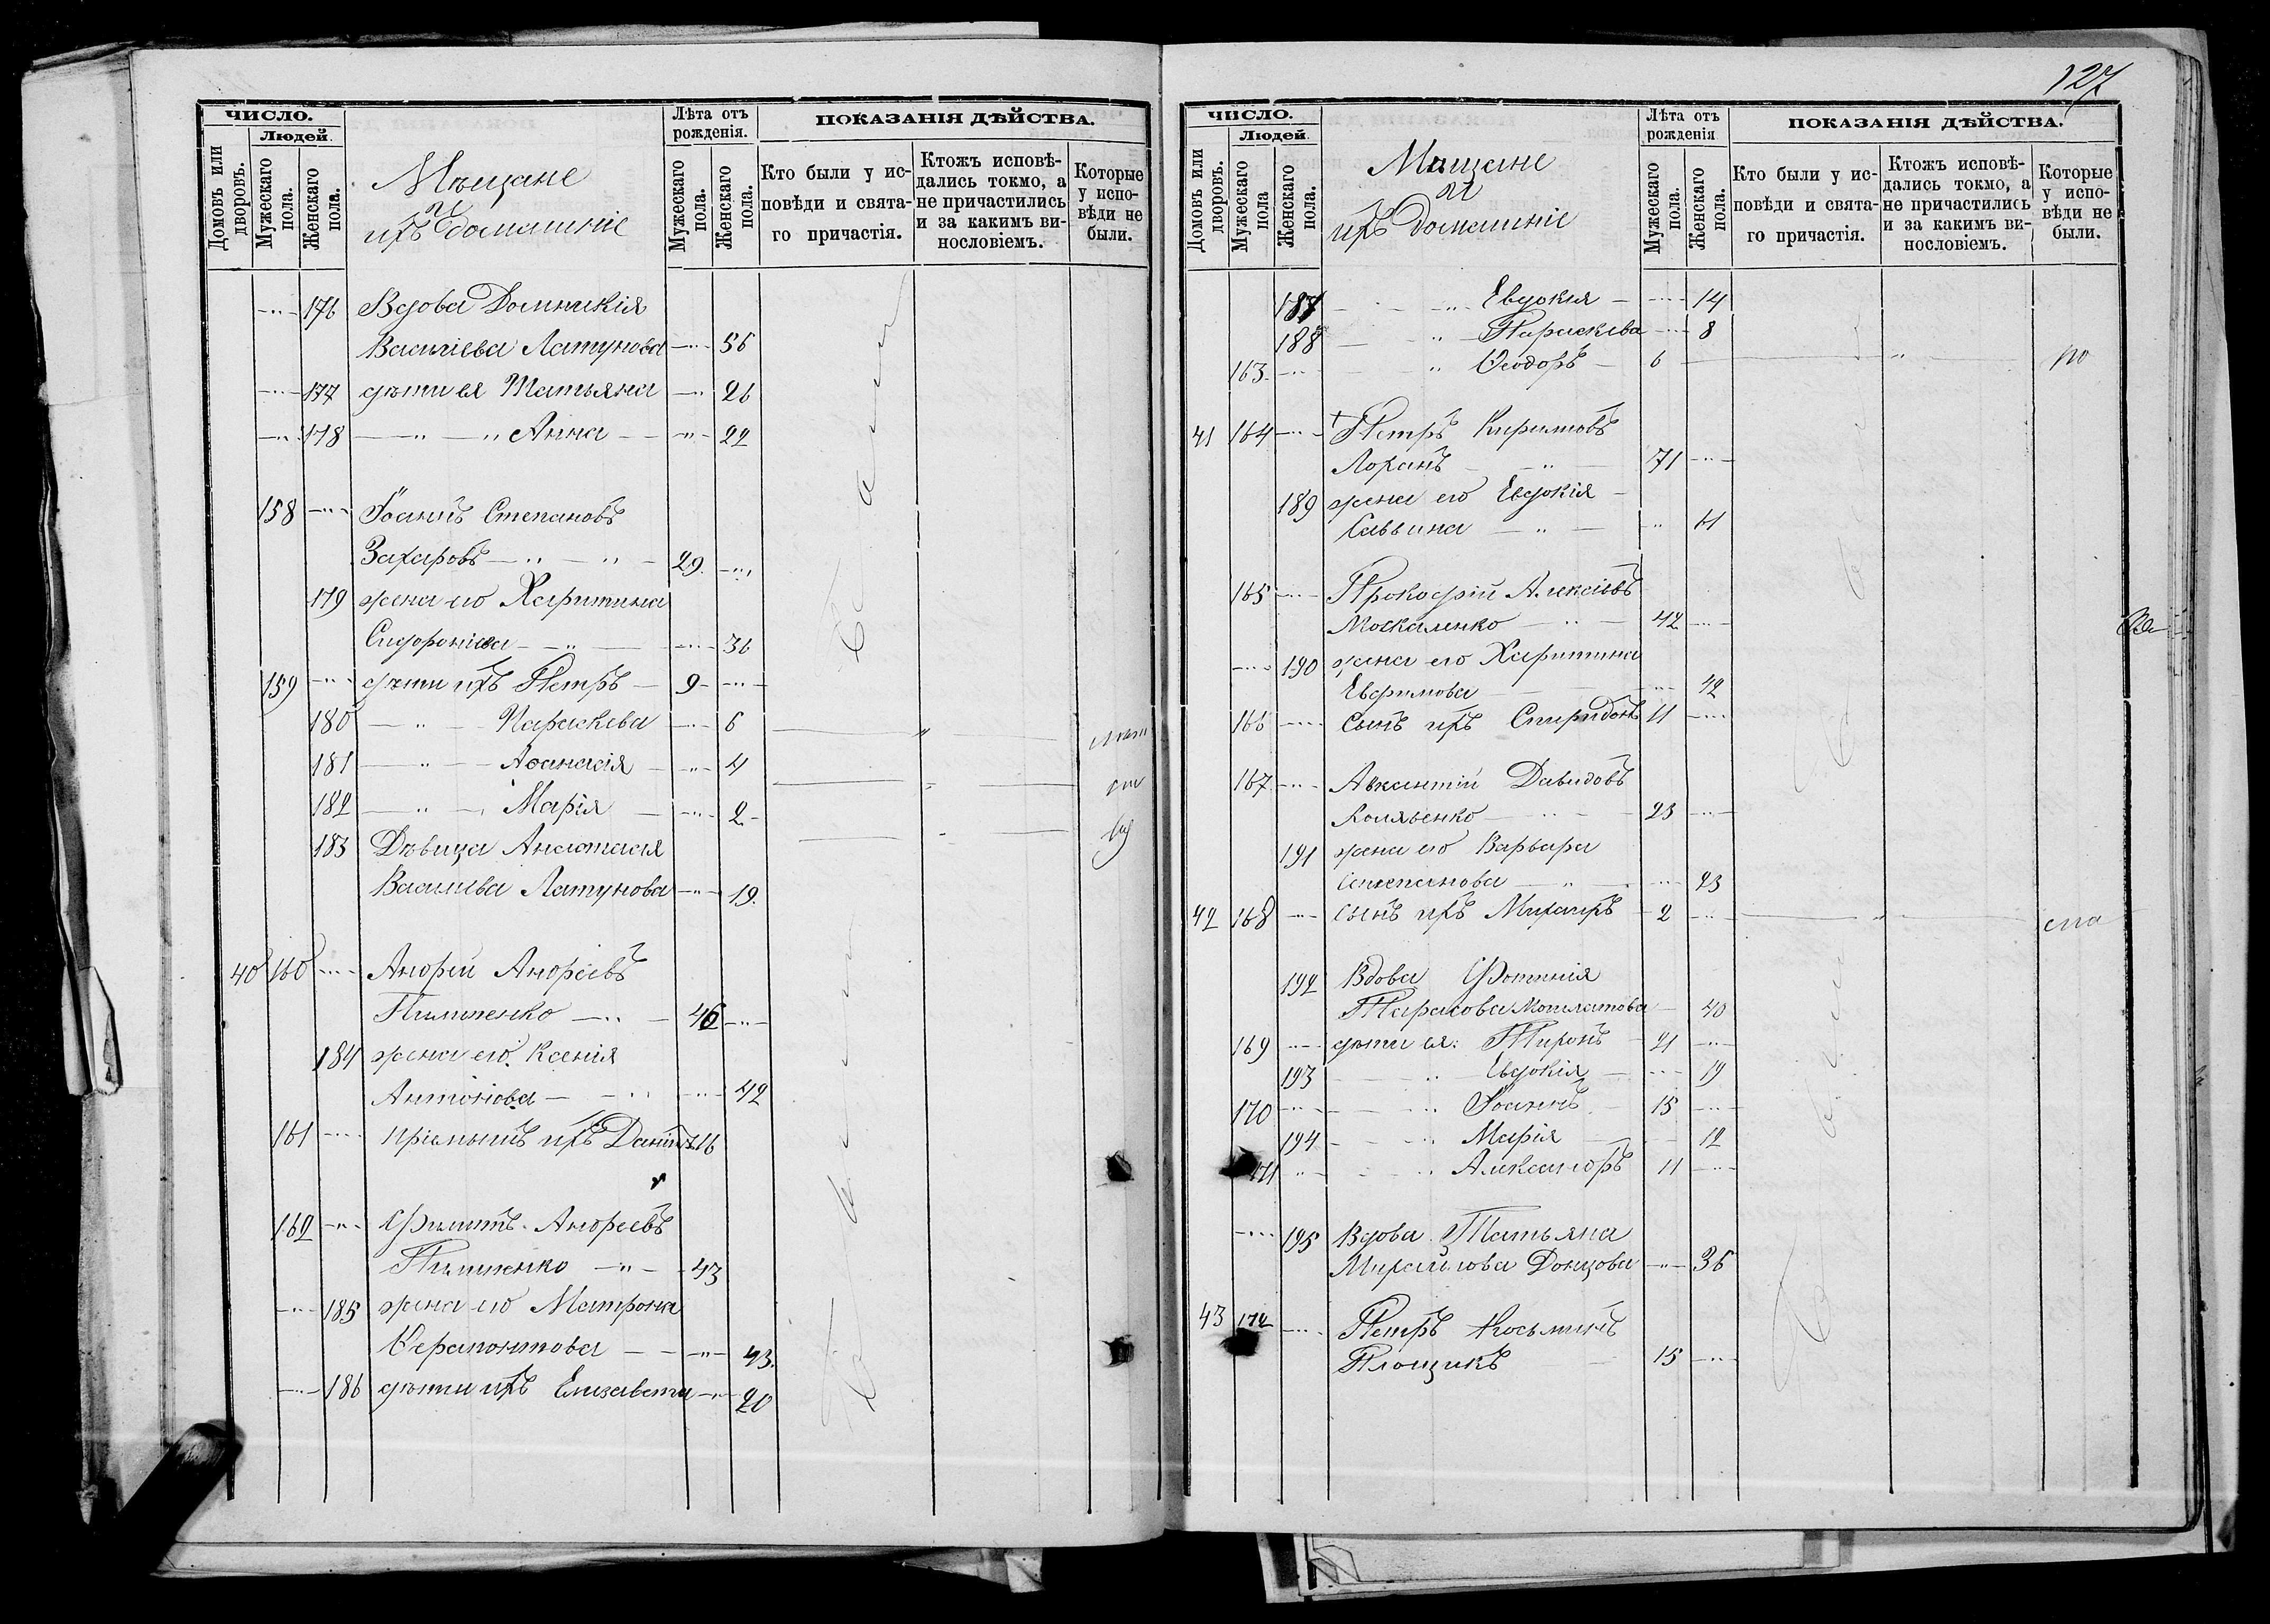 127
ЧИСЛО.
Людей.
Домовъ или дворовъ.
Мужескаго пола.
Женскаго пола.
Мѣщане
и
ихъ домашніе
Лѣта отъ рожденія.
Мужескаго пола.
Женскаго пола.
ПОКАЗАНІЯ ДѢЙСТВА.
Кто были у исповѣди и святаго причастія.
Ктожъ исповѣдались токмо, а не причастились и за какимъ винословіемъ.
Которые у исповѣди не были.
176 Вдова Домникія
Василіева Латунова 56
177 дѣти ея Татьяна 26
178 Анна 22
158 Іоаннъ Степановъ
Захаровъ 29
179 жена его Харитина
Сафроніева 36
159 дѣти ихъ Петръ 9
180 Параскева 6
181 Аѳанасія 4
182 Марія 2
183 Дѣвица Анастасія
Василіева Латунова 19
40 160 Андрей Андреевъ
Пилипенко 46
184 жена его Ксенія
Антонова 42
161 пріемышъ ихъ Даніилъ 16
162 Филиппъ Андреевъ
Пилипенко 43
185 жена его Матрона
Ѳерапонтова 43
186 дѣти ихъ Елизавета 20
ЧИСЛО.
Людей.
Домовъ или дворовъ.
Мужескаго пола
Женскаго пола.
Мѣщане
и
ихъ домашніе
Лѣта отъ рожденія
Мужескаго пола.
Женскаго пола.
ПОКАЗАНІЯ ДѢЙСТВА.
Кто были у исповѣди и святаго причастія.
Ктожъ исповѣдались токмо, а не причастились и за какимъ винословіемъ.
Которые у исповѣди не были.
187 Евдокія 14
188 Параскева 8
163 Ѳеодоръ 6 по
41 164 Петръ Кириловъ
Лоханъ 71
189 жена его Евдокія
Саввина 61
165 Прокофій Алексѣевъ
Москаленко 42
190 жена его Харитина
Евфимова 42
166 Сынъ ихъ Спиридонъ 11
167 Авксентій Давидовъ
23
191 жена его Варвара
Степанова 23
42 168 сынъ ихъ Михаилъ 2
192 Вдова Фотинія
Тарасова 40
169 дѣти ея: 21
193 Евдокія 19
170 Іоаннъ 15
194 Марія 12
171 Александръ 11
195 Вдова Татьяна
Михайлова Донцова 36
43 172 Петръ Косьминъ
Площикъ 15